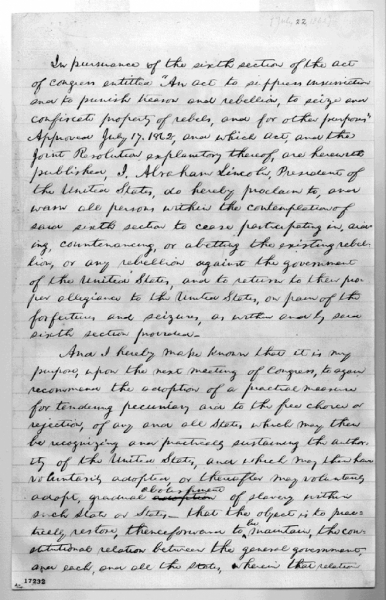 [July 22, 1862]
In pursuance of the sixth section of the act
of congress entitled "An act to suppress insurrection
and to punish treason and rebellion, to seize and
confiscate property of rebels, and for other purposes"
Approved July 17, 1862, and which act, and the
Joint Resolution explanatory thereof, are herewith
published, I, Abraham Lincoln, President of
the United States, do hereby proclaim to, and
warn all persons within the contemplation of
said sixth section to cease participating in, aid-
ing, countenancing, or abetting the existing rebel-
lion, or any rebellion against the government
of the United States, and to return to their pro-
per allegiance to the United States, on pain of the
forfeitures and seizures, as within and by said
sixth section provided.
And I hereby make known that it is my
purpose, upon the next meeting of Congress, to again
recommend the adoption of a practical measure
for tendering pecuniary aid to the free choice or
rejection, of any and all States which may then
be recognizing and practically sustaining the author-
ity of the United States, and which may then have
voluntarily adopted, or thereafter may voluntarily
abolishment
adopt, gradual adoption of slavery within
such State or States—that the object is to prac-
tically restore, thenceforward to be maintain, the con-
stitutional relation between the general government,
and each, and all the states, wherein that relation
17232